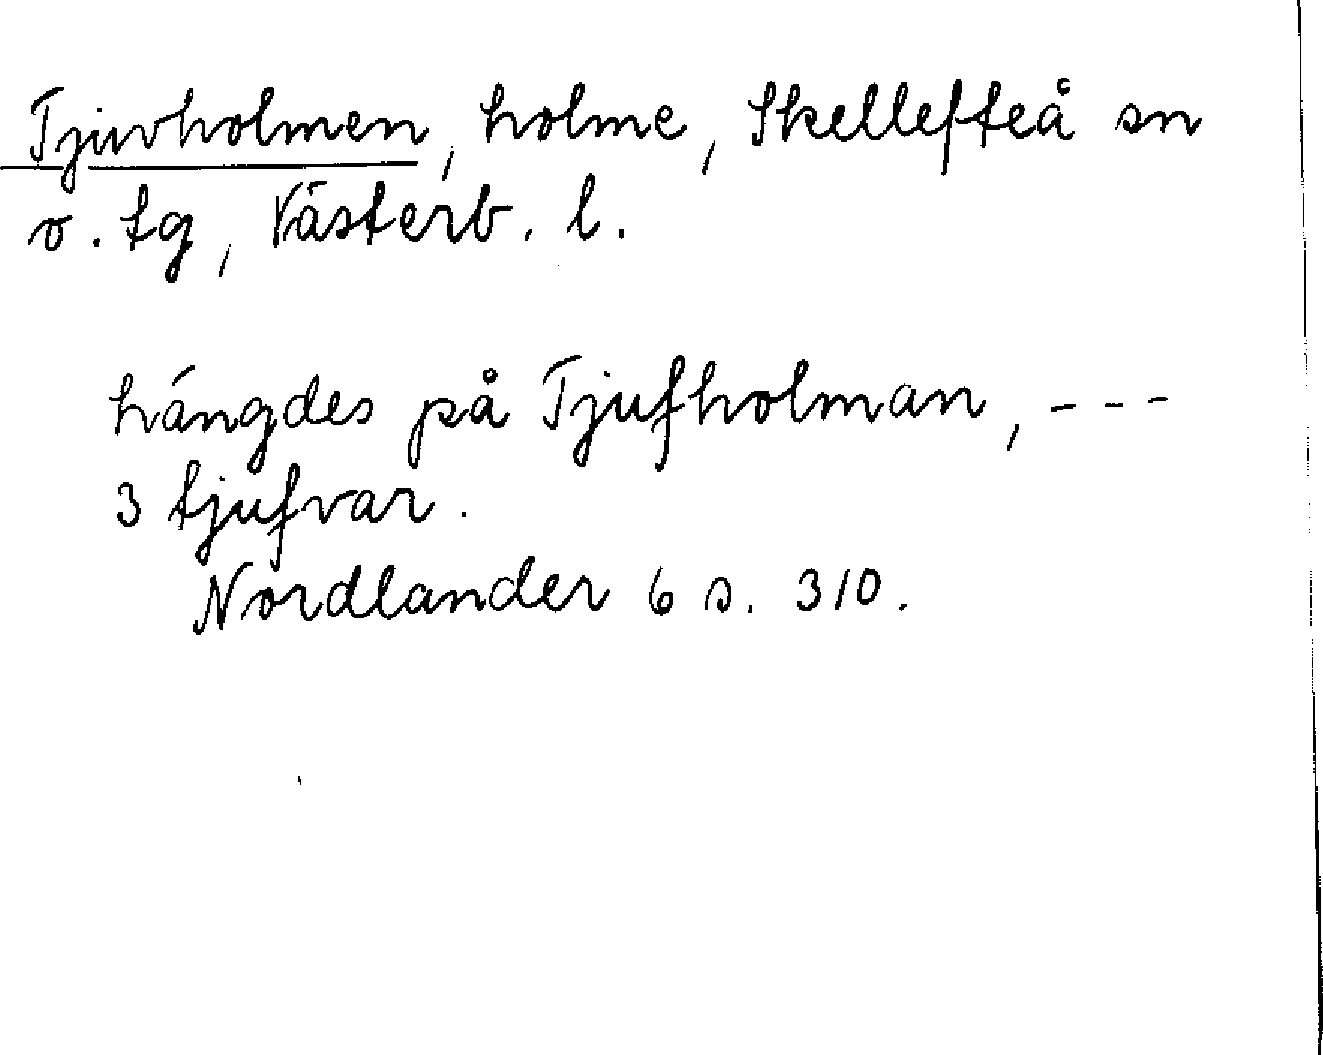 Tjuvholmen, holme, Skellefteå sn
o. tg, Västerb. l.
hängdes på Tjufholman, ---
3 tjufvar.
Nordlander 6 s. 310.